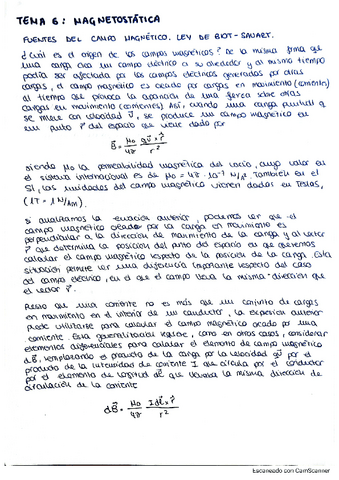 TEMA 6: MAGNETOSTÁTICA
FUENTES DEL CAMPO MAGNÉTICO. LEY DE BIOT-SAVART.
¿Cuál es el origen de los campos magnéticos? De la misma forma que
una carga crea un campo eléctrico a su alrededor y al mismo tiempo
podía ser afectada por los campos eléctricos generados por otras
cargas, el campo magnético es creado por cargas en movimiento (corrientes)
al tiempo que provoca la aparición de una fuerza sobre otras
cargas en movimiento (corrientes). Así, cuando una carga puntual q
se mueve con velocidad v⃗, se produce un campo magnético en
un punto r⃗ del espacio que viene dado por
B⃗ = μ₀/4π · q v⃗ × r̂ / r²
siendo μ₀ la permeabilidad magnética del vacío, cuyo valor en
el sistema internacional es de μ₀ = 4π · 10⁻⁷ N/A². También en el
SI, las unidades del campo magnético vienen dadas en Teslas,
(1T = 1 N/Am).
Si analizamos la ecuación anterior, podemos ver que el
campo magnético creado por la carga en movimiento es
perpendicular a la dirección de movimiento de la carga y al vector
r⃗ que determina la posición del punto del espacio en que queremos
calcular el campo magnético respecto de la posición de la carga. Esta
situación permite ver una diferencia importante respecto del caso
del campo eléctrico, en el que el campo lleva la misma dirección que
el vector r⃗.
Puesto que una corriente no es más que un conjunto de cargas
en movimiento en el interior de un conductor, la expresión anterior
puede utilizarse para calcular el campo magnético creado por una
corriente. Esta generalización requiere, como en otros casos, considerar
elementos diferenciales para calcular el elemento de campo magnético
dB⃗, reemplazando el producto de la carga por la velocidad qv⃗ por el
producto de la intensidad de corriente I que circula por el conductor
por el elemento de longitud dl⃗ que llevará la misma dirección de
circulación de la corriente
dB⃗ = μ₀/4π · I dl⃗ × r̂ / r²
Escaneado con CamScanner